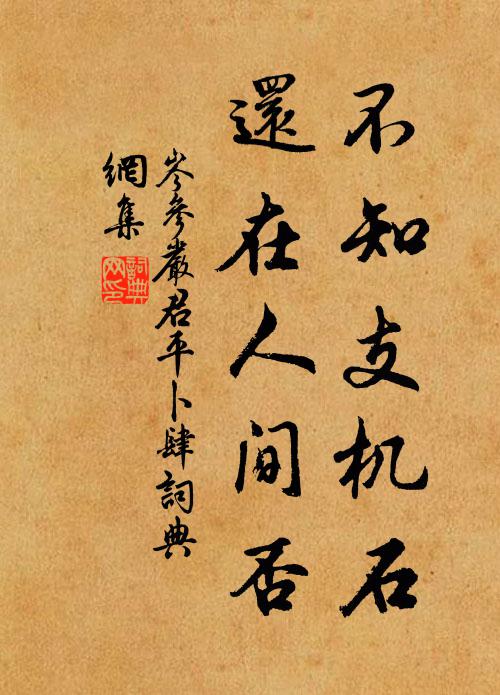 不知支机石
還在人间否
岑參嚴君平卜肆詞典
網集
詞典
网印